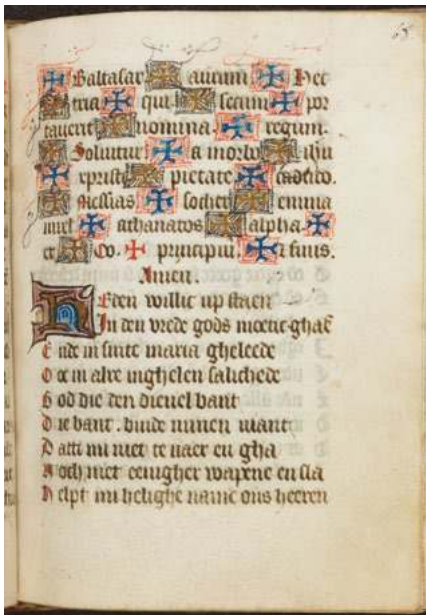 65
✠ Baltasar ✠ aurum ✠ Hec
tria ✠ qui ✠ secum ✠ por
tauerit ✠ nomina ✠ regum.
Soluitur ✠ a morbo ✠ ihu
✠ xpristi ✠ pietate ✠ caduco.
✠ Messias ✠ sother ✠ emma
nuel ✠ athanatos ✠ alpha ✠
et ✠ Oo. ✠ pryncipiu ✠ finis.
Amen.
Heden willic up staen
In den vrede gods moetic ghaē
Ende in sinte maria gheleede
Oec in alre inghelen salichede
God die den dieuel bant
Die bant. binde minen viant
Dattt mi niet te naer en gha
Noch met eenigher wapene en sla
Helpt mi helighe name ons heeren